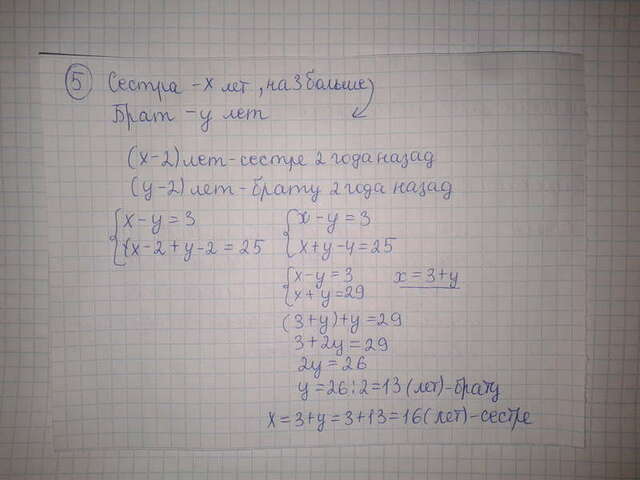 ⑤ Сестра - x лет, на 3 больше
Брат - y лет
(x-2) лет - сестре 2 года назад
(y-2) лет - брату 2 года назад
{ x - y = 3
{ x-2 + y-2 = 25
{ x - y = 3
{ x + y - 4 = 25
{ x - y = 3    x = 3 + y
{ x + y = 29
(3 + y) + y = 29
3 + 2y = 29
2y = 26
y = 26 : 2 = 13 (лет) - брату
x = 3 + y = 3 + 13 = 16 (лет) - сестре